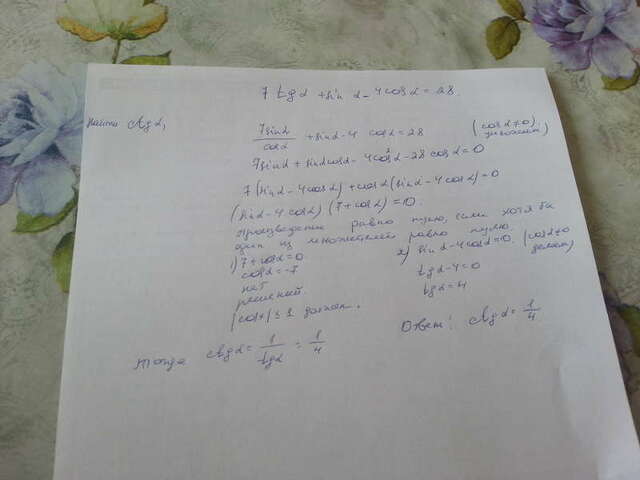 7 tg α + sin α - 4 cos α = 28.
Найти ctg α,
7 sin α / cos α + sin α - 4 cos α = 28 (cos α ≠ 0)
7 sin α + sin α cos α - 4 cos² α - 28 cos α = 0
7 (sin α - 4 cos α) + cos α (sin α - 4 cos α) = 0
(sin α - 4 cos α) (7 + cos α) = 0.
произведение равно нулю, если хотя бы
один из множителей равно нулю.
1) 7 + cos α = 0
cos α = -7
нет
решений.
|cos x| ≤ 1
2) sin α - 4 cos α = 0. (cos α ≠ 0
делим)
tg α - 4 = 0
tg α = 4
тогда ctg α = 1 / tg α = 1 / 4
Ответ: ctg α = 1 / 4